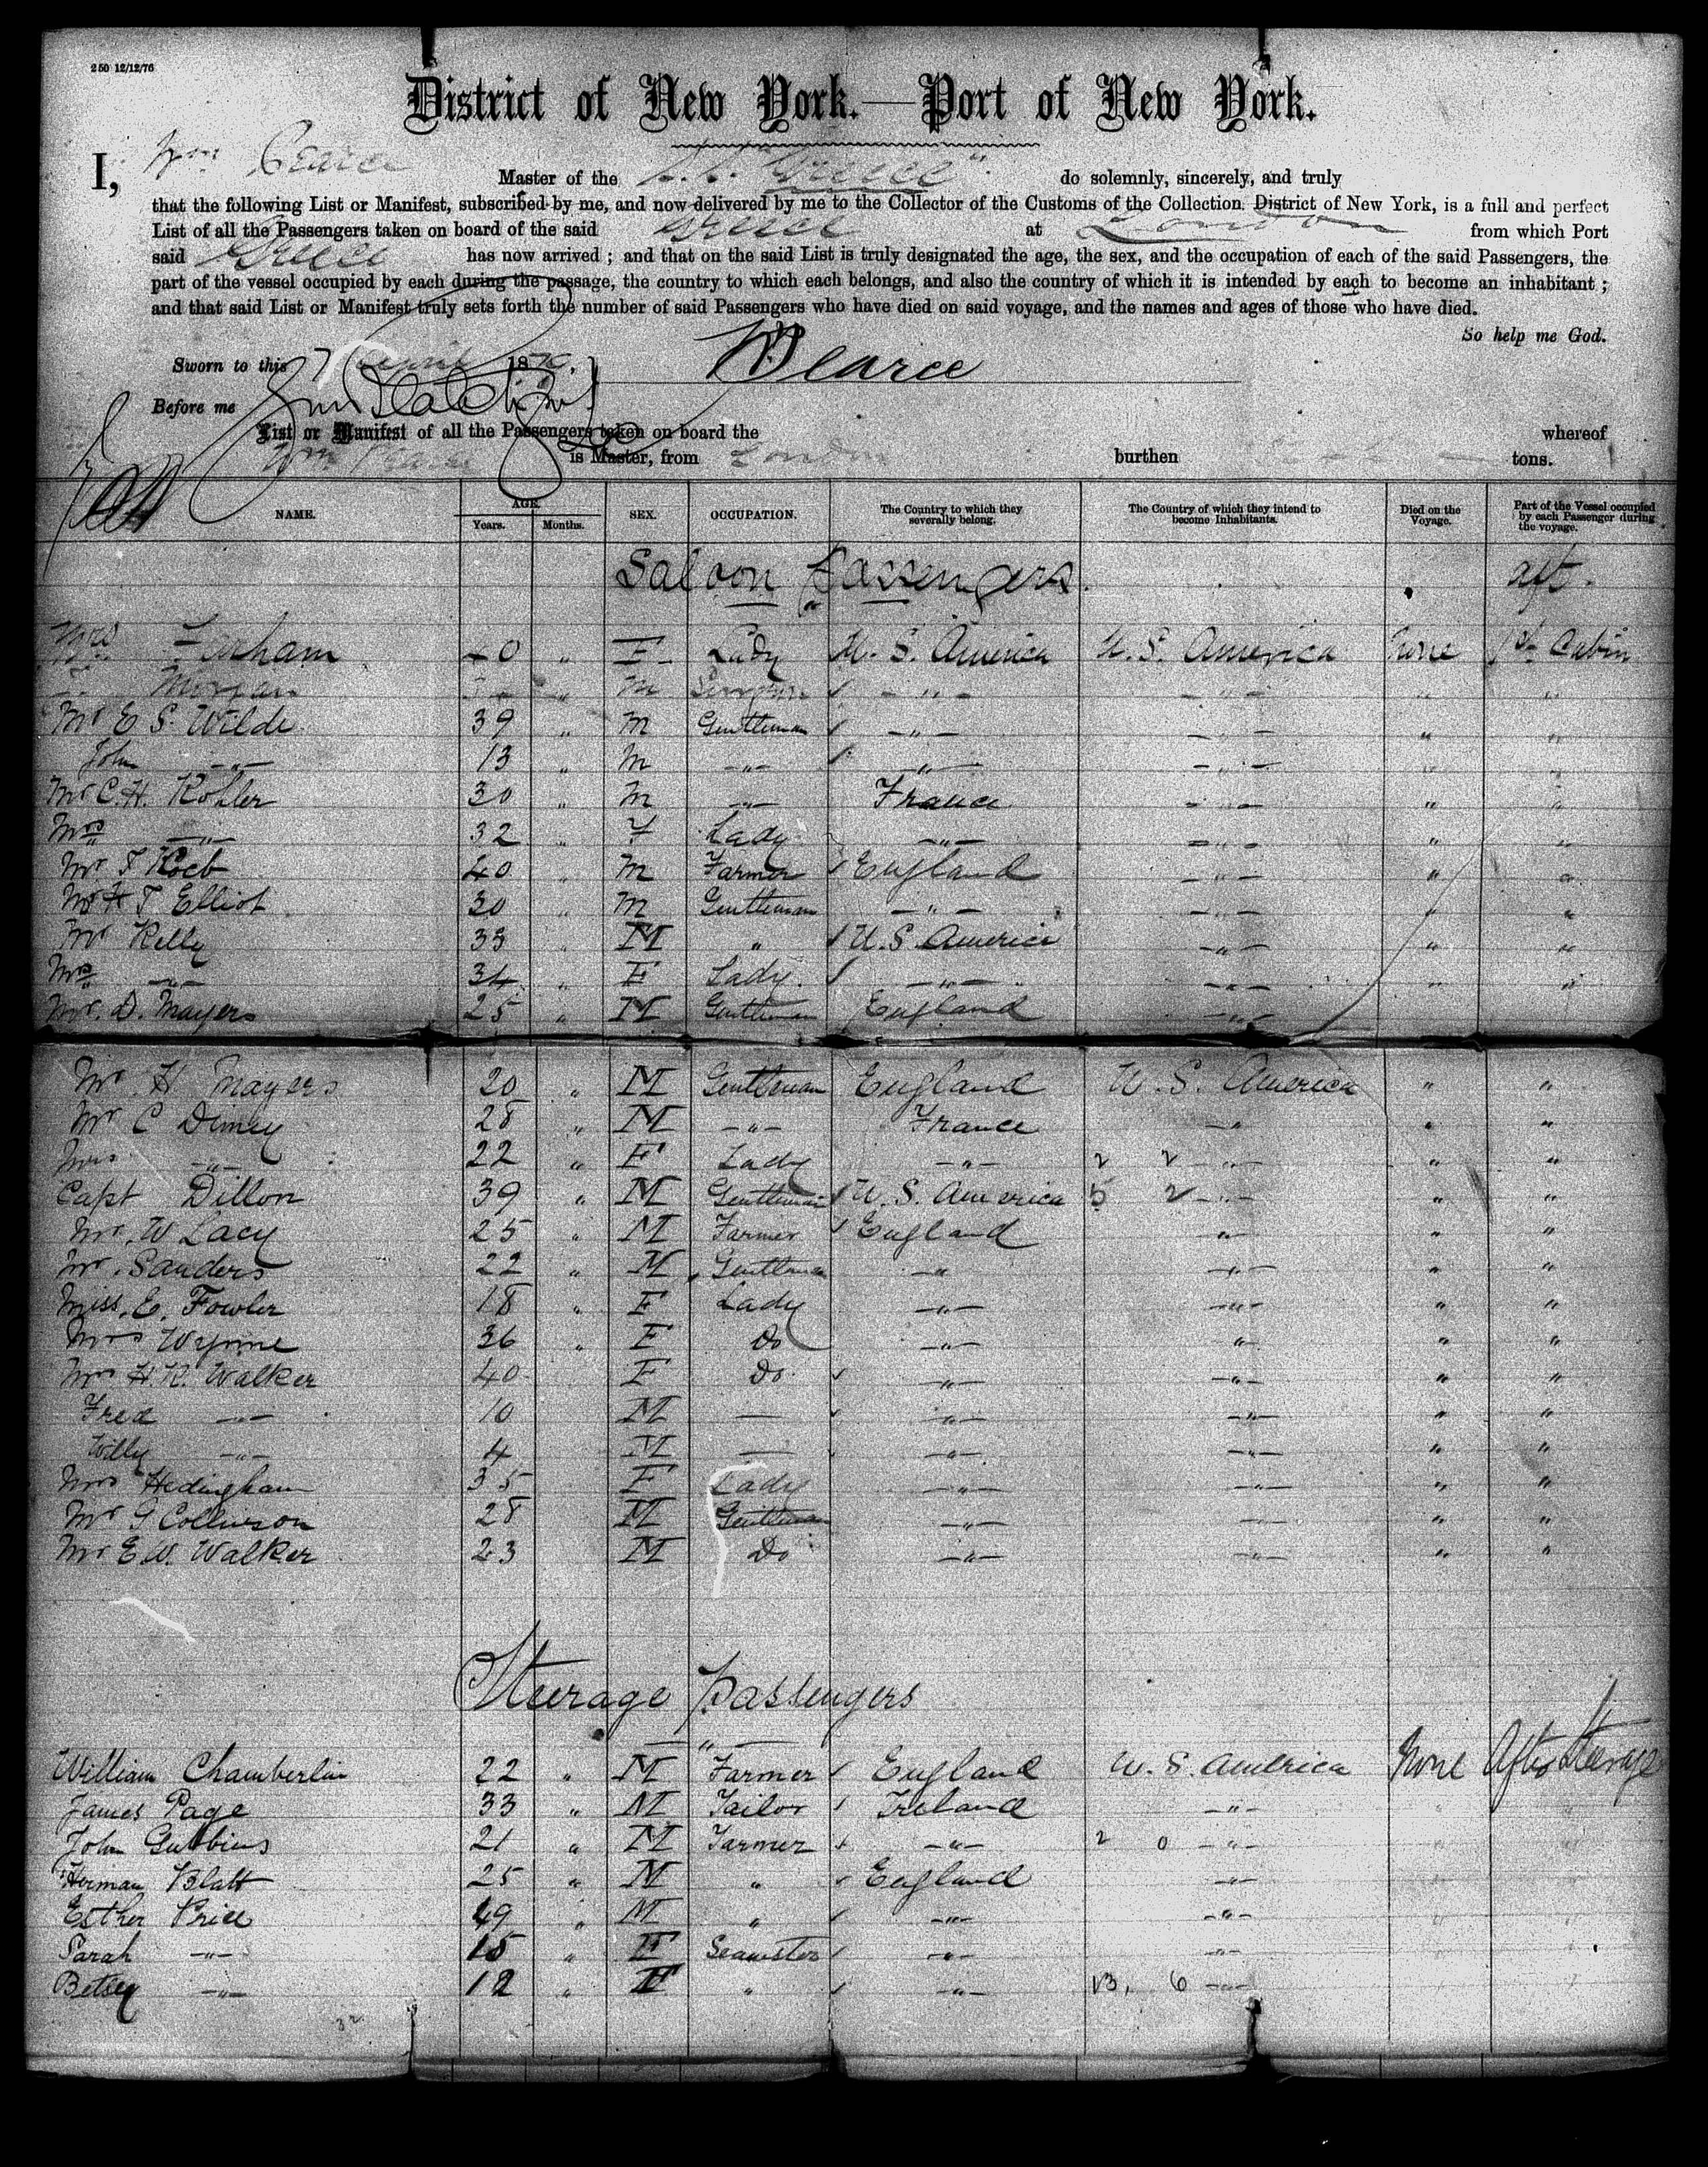 250 12/12/76
District of New York.—Port of New York.
I, Wm Pearce Master of the S.S. "Greece" do solemnly, sincerely, and truly
that the following List or Manifest, subscribed by me, and now delivered by me to the Collector of the Customs of the Collection District of New York, is a full and perfect
List of all the Passengers taken on board of the said Greece at London from which Port
said Greece has now arrived ; and that on the said List is truly designated the age, the sex, and the occupation of each of the said Passengers, the
part of the vessel occupied by each during the passage, the country to which each belongs, and also the country of which it is intended by each to become an inhabitant ;
and that said List or Manifest truly sets forth the number of said Passengers who have died on said voyage, and the names and ages of those who have died.
So help me God.
Sworn to this 7 April 187 W Pearce
Before me
List or Manifest of all the Passengers taken on board the whereof
Wm Pearce is Master, from London burthen tons.
NAME. AGE. Years. Months. SEX. OCCUPATION. The Country to which they severally belong. The Country of which they intend to become Inhabitants. Died on the Voyage. Part of the Vessel occupied by each Passenger during the voyage.
Saloon Passengers. aft.
Mrs 40 " F Lady U. S. America U. S. America None 1st Cabin
Morgan " M -"- -"- " "
Mr E S. Wilde 39 " M Gentleman -"- -"- " "
John -"- 13 " M -"- -"- -"- " "
Mr C. H. Kohler 30 " M -"- France -"- " "
Mrs -"- 32 " F Lady -"- -"- " "
Mr F Koeb 40 " M Farmer England -"- " "
Mr H T Elliot 30 " M Gentleman -"- -"- " "
Mr Kelly 33 " M " U. S. America -"- " "
Mrs -"- 34 " F Lady -"- -"- " "
Mr. D. Mayers 25 " M Gentleman England -"-
Mr H Mayers 20 " M Gentleman England U. S. America " "
Mr C Dimey 28 " M -"- France -"- " "
Mrs -"- 22 " F Lady -"- 2 2 -"- " "
Capt Dillon 39 " M Gentleman U. S. America 5 2 -"- " "
Mr. W Lacy 25 " M Farmer England " " "
Mr. Sanders 22 " M Gentleman -"- -"- " "
Miss. E. Fowler 18 " F Lady -"- -"- " "
Mrs Wynne 36 " F Do -"- " " "
Mrs H. R. Walker 40 F Do. -"- -"- " "
Fred -"- 10 M — -"- -"- " "
Willy -"- 4 M — -"- -"- " "
Mrs Hedingham 35 F Lady -"- -"- " "
Mr G Collinson 28 M Gentleman -"- -"- " "
Mr E. W. Walker 23 M Do -"- -"- " "
Steerage Passengers
-"-
William Chamberlin 22 " M Farmer England U. S. America None After Steerage
James Page 33 " M Tailor Ireland -"-
John Gubbins 21 " M Farmer -"- 2 0 -"-
Herman Blatt 25 " M " England -"-
Esther Price 49 " M " -"- -"-
Sarah -"- 15 " F Seamster -"- -"-
Betsey -"- 12 " F " -"- 13, 6 -"-